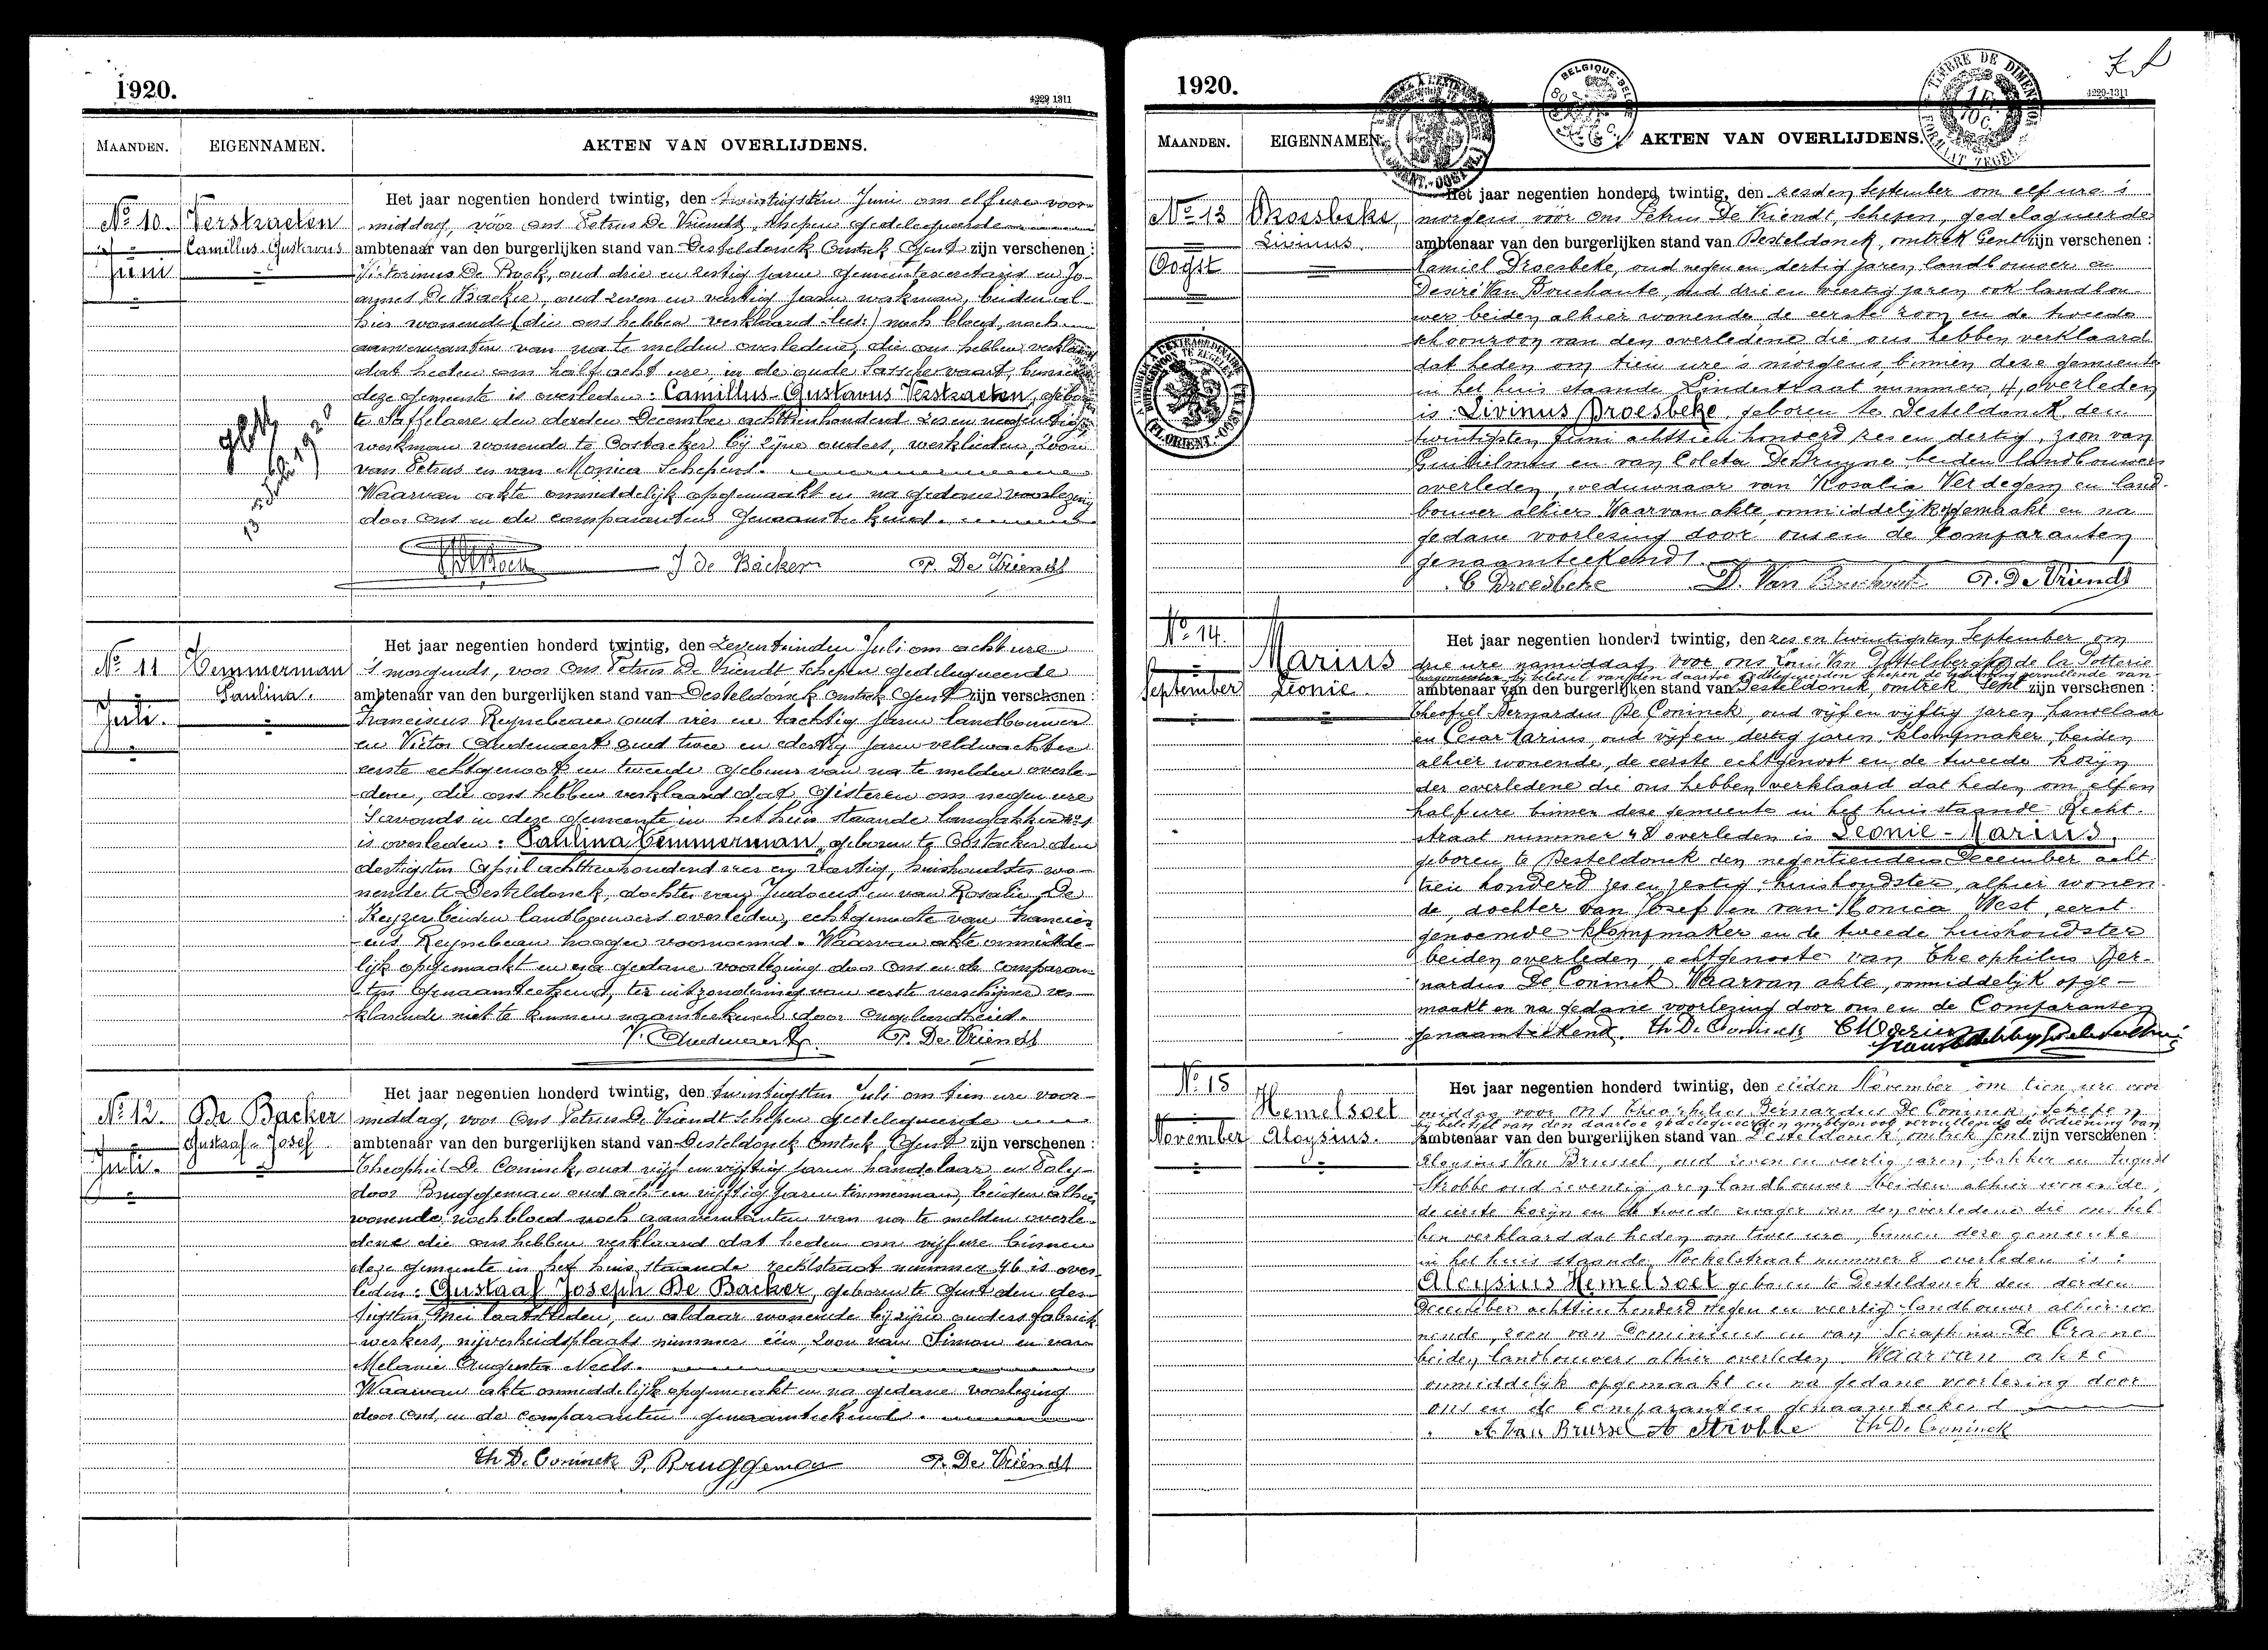 1920.
4229 1311
MAANDEN. EIGENNAMEN. AKTEN VAN OVERLIJDENS.
Het jaar negentien honderd twintig, den twintigsten Juni om elf ure voor-
No 10. Verstraeten middag, vóor ons Petrus De Vriendt, schepen gedelegueerde
Camillus-Gustavus ambtenaar van den burgerlijken stand van Desteldonck omtrek Gent zijn verschenen :
Juni Victorinus De Bock, oud drie en zestig jaren gemeentesecretaris en Jo-
annes De Backer, oud zeven en veertig jaren werkman, beiden al-
hier wonende (die ons hebben verklaard) noch bloed, noch
aanverwanten van na te melden overledene, die ons hebben verklaard
dat heden om half acht ure, in de oude Sasschevaart, binnen
deze gemeente is overleden : Camillus-Gustavus Verstraeten, geboren
te Saffelaere den derden December achttienhonderd zes en negentig
werkman wonende te Oostacker bij zijne ouders, werklieden, zoon
van Petrus en van Monica Schepens.
Waarvan akte onmiddelijk opgemaakt en na gedane voorlezing
door ons en de comparanten genaamteekend.
J De Backer P. De Vriendt
Het jaar negentien honderd twintig, den zeventienden Juli om acht ure
No 11 Temmerman 's morgends, voor ons Petrus De Vriendt Schepen gedelegueerde
Paulina. ambtenaar van den burgerlijken stand van Desteldonck omtrek Gent zijn verschenen :
Juli. Franciscus Reynebeau oud vier en tachtig jaren landbouwer
en Victor Audenaert oud twee en dertig jaren veldwachter
eerste echtgenoot en tweede gebuur van na te melden overle-
dene, die ons hebben verklaard dat gisteren om negen ure
'savonds in deze gemeente in het huis staande langakker no 1
is overleden : Paulina Temmerman, geboren te Oostacker den
dertigsten April achttienhonderd vier en veertig, huishoudster wo-
nende te Desteldonck, dochter van Judocus en van Rosalie De
Keyzer beiden landbouwers overleden, echtgenoote van Francis-
cus Reynebeau hooger voornoemd. Waarvan akte onmidde-
lijk opgemaakt en na gedane voorlezing door ons en de comparan-
ten genaamteekend, ter uitzondering van eerste verschijner ver-
klarende niet te kunnen naamteekenen door ongeleerdheid.
V. Audenaert P. De Vriendt
Het jaar negentien honderd twintig, den twintigsten Juli om tien ure voor-
No 12. De Backer middag, voor ons Petrus De Vriendt Schepen gedelegueerde
Gustaaf-Josef ambtenaar van den burgerlijken stand van Desteldonck omtrek Gent zijn verschenen :
Juli. Theophiel De Coninck, oud vijf en vijftig jaren handelaar en Poly-
door Bruggeman oud acht en vijftig jaren timmerman, beiden alhier
wonende, noch bloed noch aanverwanten van na te melden overle-
dene die ons hebben verklaard dat heden om vijf ure binnen
deze gemeente in het huis staande rechtstraat nummer 46 is over-
leden : Gustaaf Joseph De Backer, geboren te Gent den der-
tigsten Mei laatstleden, en aldaar wonende bij zijne ouders fabriek-
werkers, nijverheidsplaats nummer één, zoon van Simon en van
Melanie Augusta Neels.
Waarvan akte onmiddelijk opgemaakt en na gedane voorlezing
door ons, en de comparanten genaamteekend.
Th De Coninck P. Bruggeman P. De Vriendt
1920.
4229-1311
MAANDEN. EIGENNAMEN. AKTEN VAN OVERLIJDENS.
Het jaar negentien honderd twintig, den zesden September om elf ure 's
No 13 Droesbeke, morgens vóór ons Petrus De Vriendt, schepen, gedelegueerde
Livinus. ambtenaar van den burgerlijken stand van Desteldonck, omtrek Gent zijn verschenen :
Oogst Kamiel Droesbeke, oud negen en dertig jaren, landbouwer en
Desiré Van Bouchaute, oud drie en veertig jaren ook landbou-
wer beiden alhier wonende, de eerste zoon en de tweede
schoonzoon van den overledene die ons hebben verklaard
dat heden om tien ure 's morgens, binnen deze gemeente
in het huis staande Lindestraat nummer 4, overleden
is : Livinus Droesbeke, geboren te Desteldonck den
twintigsten Juni achttien honderd zes en dertig, zoon van
Guilielmus en van Coleta De Bruyne beiden landbouwers
overleden, weduwnaar van Rosalia Verdegem en land-
bouwer alhier. Waarvan akte, onmiddelijk opgemaakt en na
gedane voorlezing door ons en de Comparanten
genaamteekend.
C Droesbeke D. Van Bouchaut P. De Vriendt
No 14. Het jaar negentien honderd twintig, den zes en twintigsten September om
Marius drie ure namiddag, voor ons Van Pottelsberghe de la Potterie
burgemeester, bij beletsel van den daartoe gedelegueerden schepen de bediening vervullende van
September Leonie ambtenaar van den burgerlijken stand van Desteldonck, omtrek Gent zijn verschenen :
Theofiel Bernardus De Coninck, oud vijf en vijftig jaren, handelaar
en Cesar Marius, oud vijf en dertig jaren, klompmaker, beiden
alhier wonende, de eerste echtgenoot en de tweede kozijn
der overledene die ons hebben verklaard dat heden om elf en
half ure binnen deze gemeente in het huis staande Recht-
straat nummer 48 overleden is Leonie-Marius,
geboren te Desteldonck den negentienden December acht-
tien honderd zes en zestig, huishoudster, alhier wonen-
de, dochter van Josef en van Monica West, eerst-
genoemde klompmaker en de tweede huishoudster
beiden overleden, echtgenoote van Theophilus Ber-
nardus De Coninck Waarvan akte, onmiddelijk opge-
maakt en na gedane voorlezing door ons en de Comparanten
genaamteekend. Th De Coninck C Marius
No 15 Het jaar negentien honderd twintig, den elfden November om tien ure voor
Hemelsoet middag voor ons Theophilus Bernardus De Coninck, schepen
bij beletsel van den daartoe gedelegueerden ambtgenoot vervullende de bediening van
November Aloysius. ambtenaar van den burgerlijken stand van Desteldonck, omtrek Gent zijn verschenen :
Aloysius Van Brussel, oud zeven en veertig jaren, bakker en August
Strobbe oud zeventig jaren, landbouwer beiden alhier wonende,
de eerste kozijn en de tweede zwager van den overledene die ons heb-
ben verklaard dat heden om twee ure, binnen deze gemeente
in het huis staande straat nummer 8 overleden is :
Aloysius Hemelsoet geboren te Desteldonck den derden
December achttien honderd negen en veertig landbouwer alhier wo-
nende, zoon van Dominicus en van Seraphina De Craene
beiden landbouwers alhier overleden. Waarvan akte
onmiddelijk opgemaakt en na gedane voorlezing door
ons en de comparanten genaamteekend
A Van Brussel A Strobbe Th De Coninck